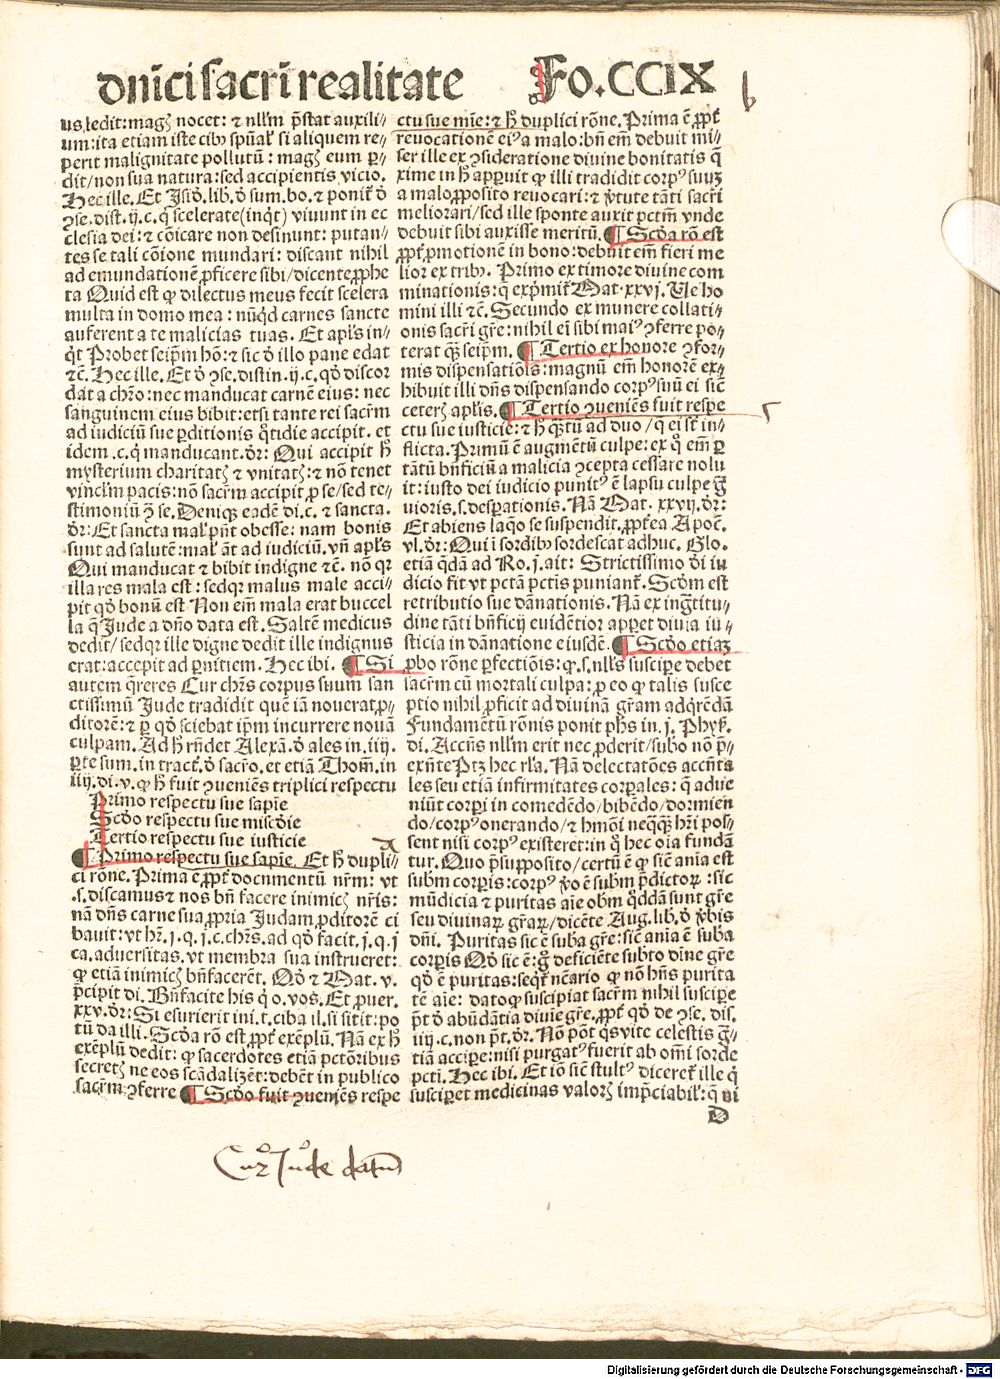 dn̄ici sacri realitate Fo.CCIX
b
us, ledit: magꝫ nocet: ⁊ nll'm p̄stat auxili//
um: ita etiam iste cibꝰ spūal' si aliquem re//
perit malignitate pollutū: magꝫ eum ꝑ//
dit/ non sua natura: sed accipientis vicio.
Hec ille. Et Jsid̄. lib. d̄ sum. bo. ⁊ ponit̄ d̄
ꝯse. dist. ij. c. q̄ scelerate (inq̄t) viuunt in ec
clesia dei: ⁊ cōicare non desinunt: putan//
tes se tali cōione mundari: discant nihil
ad emundationē ꝓficere sibi/ dicente ꝓphe
ta Quid est ꝙ dilectus meus fecit scelera
multa in domo mea: nūqd̄ carnes sancte
auferent a te malicias tuas. Et apl's in//
q̄t Probet seip̄m hō: ⁊ sic d̄ illo pane edat
⁊c̄. Hec ille. Et d̄ ꝯse. distin. ij. c. qd̄ discor
dat a chr̄o: nec manducat carnē eius: nec
sanguinem eius bibit: etsi tante rei sacr̄m
ad iudiciū sue ꝑditionis q̄tidie accipit. et
idem .c. q̄ manducant. dr̄: Qui accipit h̄
mysterium charitatꝫ ⁊ vnitatꝫ: ⁊ nō tenet
vincl'm pacis: nō sacr̄m accipit ꝓ se/ sed te//
stimoniū ꝯ̄ se. Deniqꝫ eadē di. c. ⁊ sancta.
dr̄: Et sancta mal' pn̄t obesse: nam bonis
sunt ad salutē: mal' āt ad iudiciū. vn̄ apl's
Qui manducat ⁊ bibit indigne ⁊c̄. nō qr
illa res mala est: sed qr malus male acci//
pit qd̄ bonū est Non em̄ mala erat buccel
la q̄ Jude a dn̄o data est. Saltē medicus
dedit/ sed qr ille digne dedit ille indignus
erat: accepit ad ꝑnitiem. Hec ibi. ¶ Si
autem q̄reres Cur chr̄s corpus suum san
ctissimū Jude tradidit quē iā nouerat ꝓ//
ditorē: ⁊ ꝑ qd̄ sciebat ip̄m incurrere nouā
culpam. Ad h̄ rn̄det Alexā. d̄ ales in .iiij.
ꝑte sum. in tract. d̄ sacr̄o. et etiā Thom̄. in
iiij. di. v. ꝙ h̄ fuit ꝯueniēs triplici respectu
Primo respectu sue sapie
Scd̄o respectu sue mis̄cdie
Tertio respectu sue iusticie
A
¶ Primo respectu sue sapie. Et h̄ dupli//
ci rōne. Prima ē ꝓpt̄ documentū nr̄m: vt
.s. discamus ⁊ nos bn̄ facere inimicꝫ nr̄is:
nā dn̄s carne sua ꝓpria Judam ꝓditorē ci
bauit: vt hr̄ .j. q. j. c. chr̄s. ad qd̄ facit. j. q. j
ca. aduersitas. vt membra sua instrueret:
ꝙ etiā inimicꝫ bn̄facerēt. Qd̄ ⁊ Mat. v.
p̄cipit di. Bn̄facite his q̄ o. vos. Et ꝓuer.
xxv. dr̄: Si esurierit ini. t. ciba il. si sitit: po
tū da illi. Scd̄a rō est ꝓpt̄ exēplū. Nā ex h̄
exēplū dedit: ꝙ sacerdotes etiā pctōribus
secretꝫ ne eos scādalizēt: debēt in publico
sacr̄m ꝯferre ¶ Scd̄o fuit ꝯueniēs respe
ctu sue mīe: ⁊ h̄ duplici rōne. Prima ē ꝓpt̄
reuocationē eiꝰ a malo: bn̄ em̄ debuit mi//
ser ille ex ꝯsideratione diuine bonitatis q̄
xime in h̄ apꝑuit ꝙ illi tradidit corpꝰ suuꝫ
a malo ꝓposito reuocari: ⁊ v̄tute tāti sacr̄i
meliorari/ sed ille sponte auxit pctm̄ vnde
debuit sibi auxisse meritū. ¶ Scd̄a rō est
ꝓpt̄ ꝓmotionē in bono: debuit em̄ fieri me
lior ex tribꝰ. Primo ex timore diuine com
minationis: q̄ exp̄mit̄ Mat. xxvj. Ve ho
mini illi ⁊c̄. Secundo ex munere collati//
onis sacr̄i gr̄e: nihil ei sibi maiꝰ ꝯferre po//
terat q̄ꝫ seip̄m. ¶ Tertio ex honore ꝯfor//
mis dispensatiōis: magnū em̄ honorē ex//
hibuit illi dn̄s dispensando corpꝰ suū ei sic̄
ceterꝫ apl'is. ¶ Tertio ꝯueniēs fuit respe
r
ctu sue iusticie: ⁊ h̄ q̄ꝫtū ad duo/ q̄ ei st̄ in//
flicta. Primū ē augmētū culpe: ex q̄ em̄ ꝑ
tātū bn̄ficiū a malicia ꝯcepta cessare nolu
it: iusto dei iudicio punitꝰ ē lapsu culpe ḡ
uioris .s. desꝑationis. Nā Mat. xxvij. dr̄:
Et abiens laqo se suspendit. ꝓpt̄ea Apoc̄.
vl. dr̄: Qui ī sordibꝰ sordescat adhuc. Glo.
etiā qd̄ā ad Ro. j. ait: Strictissimo dī iu
dicio fit vt pctā pctīs puniant̄. Scd̄m est
retributio sue dānationis. Nā ex ingr̄titu//
dine tāti bn̄ficij euidētior apꝑet diuīa iu//
sticia in dānatione eiusdē. ¶ Scd̄o etiaꝫ
ꝓbo rōne ꝑfectiōis: qꝛ .s. nll's suscipe debet
sacr̄m cū mortali culpa: ꝓ eo ꝙ talis susce
ptio nihil ꝓficit ad diuinā gr̄am adq̄rēdā
Fundamētū rōnis ponit ph̄s in .j. Phyꝰ.
di. Accn̄s nll'm erit nec ꝓderit/ subo nō p̄//
exn̄te Ptꝫ hec rl'a. Nā delectatōes accn̄ta
les seu etiā infirmitates corꝑales: q̄ adue
niūt corꝑi in comedēdo/ bibēdo/ dormien
do/ corpꝰ onerando/ ⁊ hmōi neq̄qꝫ hr̄i pos//
sent nisi corpꝰ existeret: in q̄ hec oīa fundā
tur. Quo p̄supposito/ certū ē ꝙ sic̄ aīa est
subm corꝑis: corpꝰ v̄o ē subm p̄dictoꝝ: sic
mūdicia ⁊ puritas aīe obm qd̄dā sunt gr̄e
seu diuinaꝝ gr̄aꝝ/ dicēte Aug. lib. d̄ v̄bis
dn̄i. Puritas sic ē suba gr̄e: sic̄ aīa ē suba
corꝑis Qd̄ sic ē: g̊ deficiēte subto dīne gr̄e
qd̄ ē puritas: seqt̄ nc̄ario ꝙ nō hn̄s purita
tē aīe: dato ꝙ suscipiat sacr̄m nihil suscipe
pt̄ d̄ abūdātia diuīe gr̄e. ꝓpt̄ qd̄ de ꝯse. dis.
iiij. c. non pt̄. dr̄. Nō pōt q̄s vite celestis gr̄//
tiā accipe: nisi purgatꝰ fuerit ab om̄i sorde
pcti. Hec ibi. Et iō sic̄ stultꝰ diceret̄ ille q̄
susciꝑet medicinas valorꝫ imp̄ciabil': q̄ ni
D
Cur Jude datū
Digitalisierung gefördert durch die Deutsche Forschungsgemeinschaft - DFG